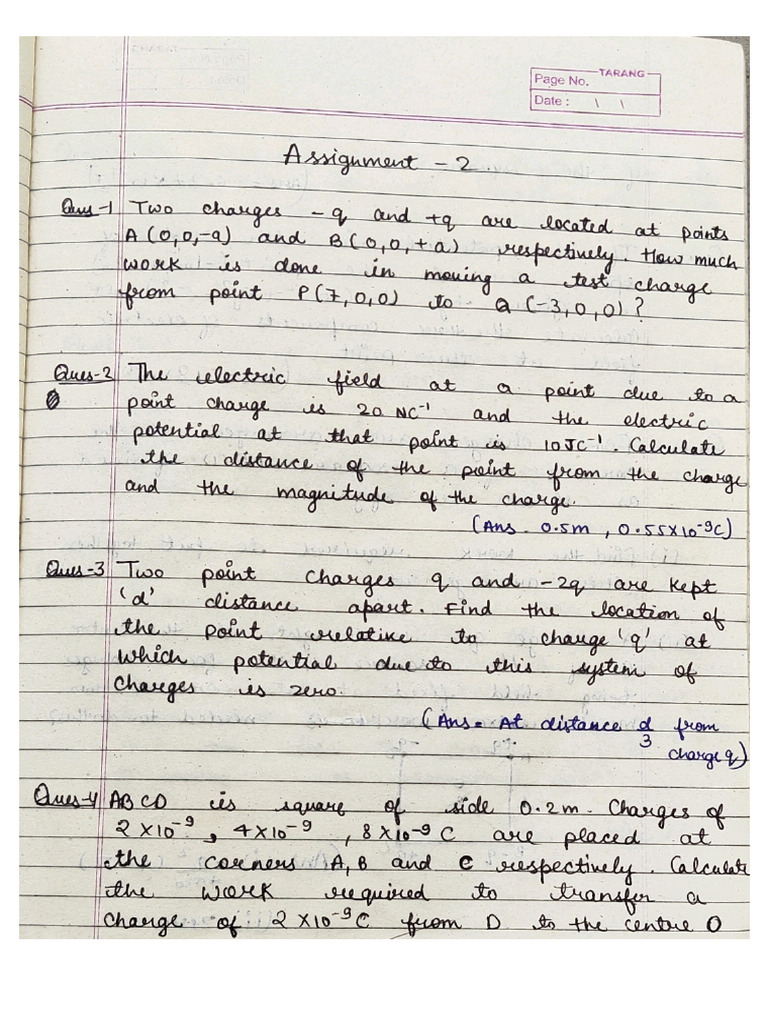 TARANG
Page No.
Date : \ \
Assignment - 2.
Ques-1 Two charges -q and +q are located at points
A (0,0,-a) and B(0,0,+a) respectively. How much
work is done in moving a test charge
from point P(7,0,0) to Q (-3,0,0)?
Ques-2 The electric field at a point due to a
point charge is 20 NC⁻¹ and the electric
potential at that point is 10 JC⁻¹. Calculate
the distance of the point from the charge
and the magnitude of the charge.
(Ans - 0.5m, 0.55×10⁻⁹C)
Ques-3 Two point charges q and -2q are kept
'd' distance apart. Find the location of
the point relative to charge 'q' at
which potential due to this system of
charges is zero.
(Ans = At distance d/3 from
charge q)
Ques-4 ABCD is square of side 0.2m. Charges of
2×10⁻⁹, 4×10⁻⁹, 8×10⁻⁹ C are placed at
the corners A, B and C respectively. Calculate
the work required to transfer a
charge of 2×10⁻⁹C from D to the centre O